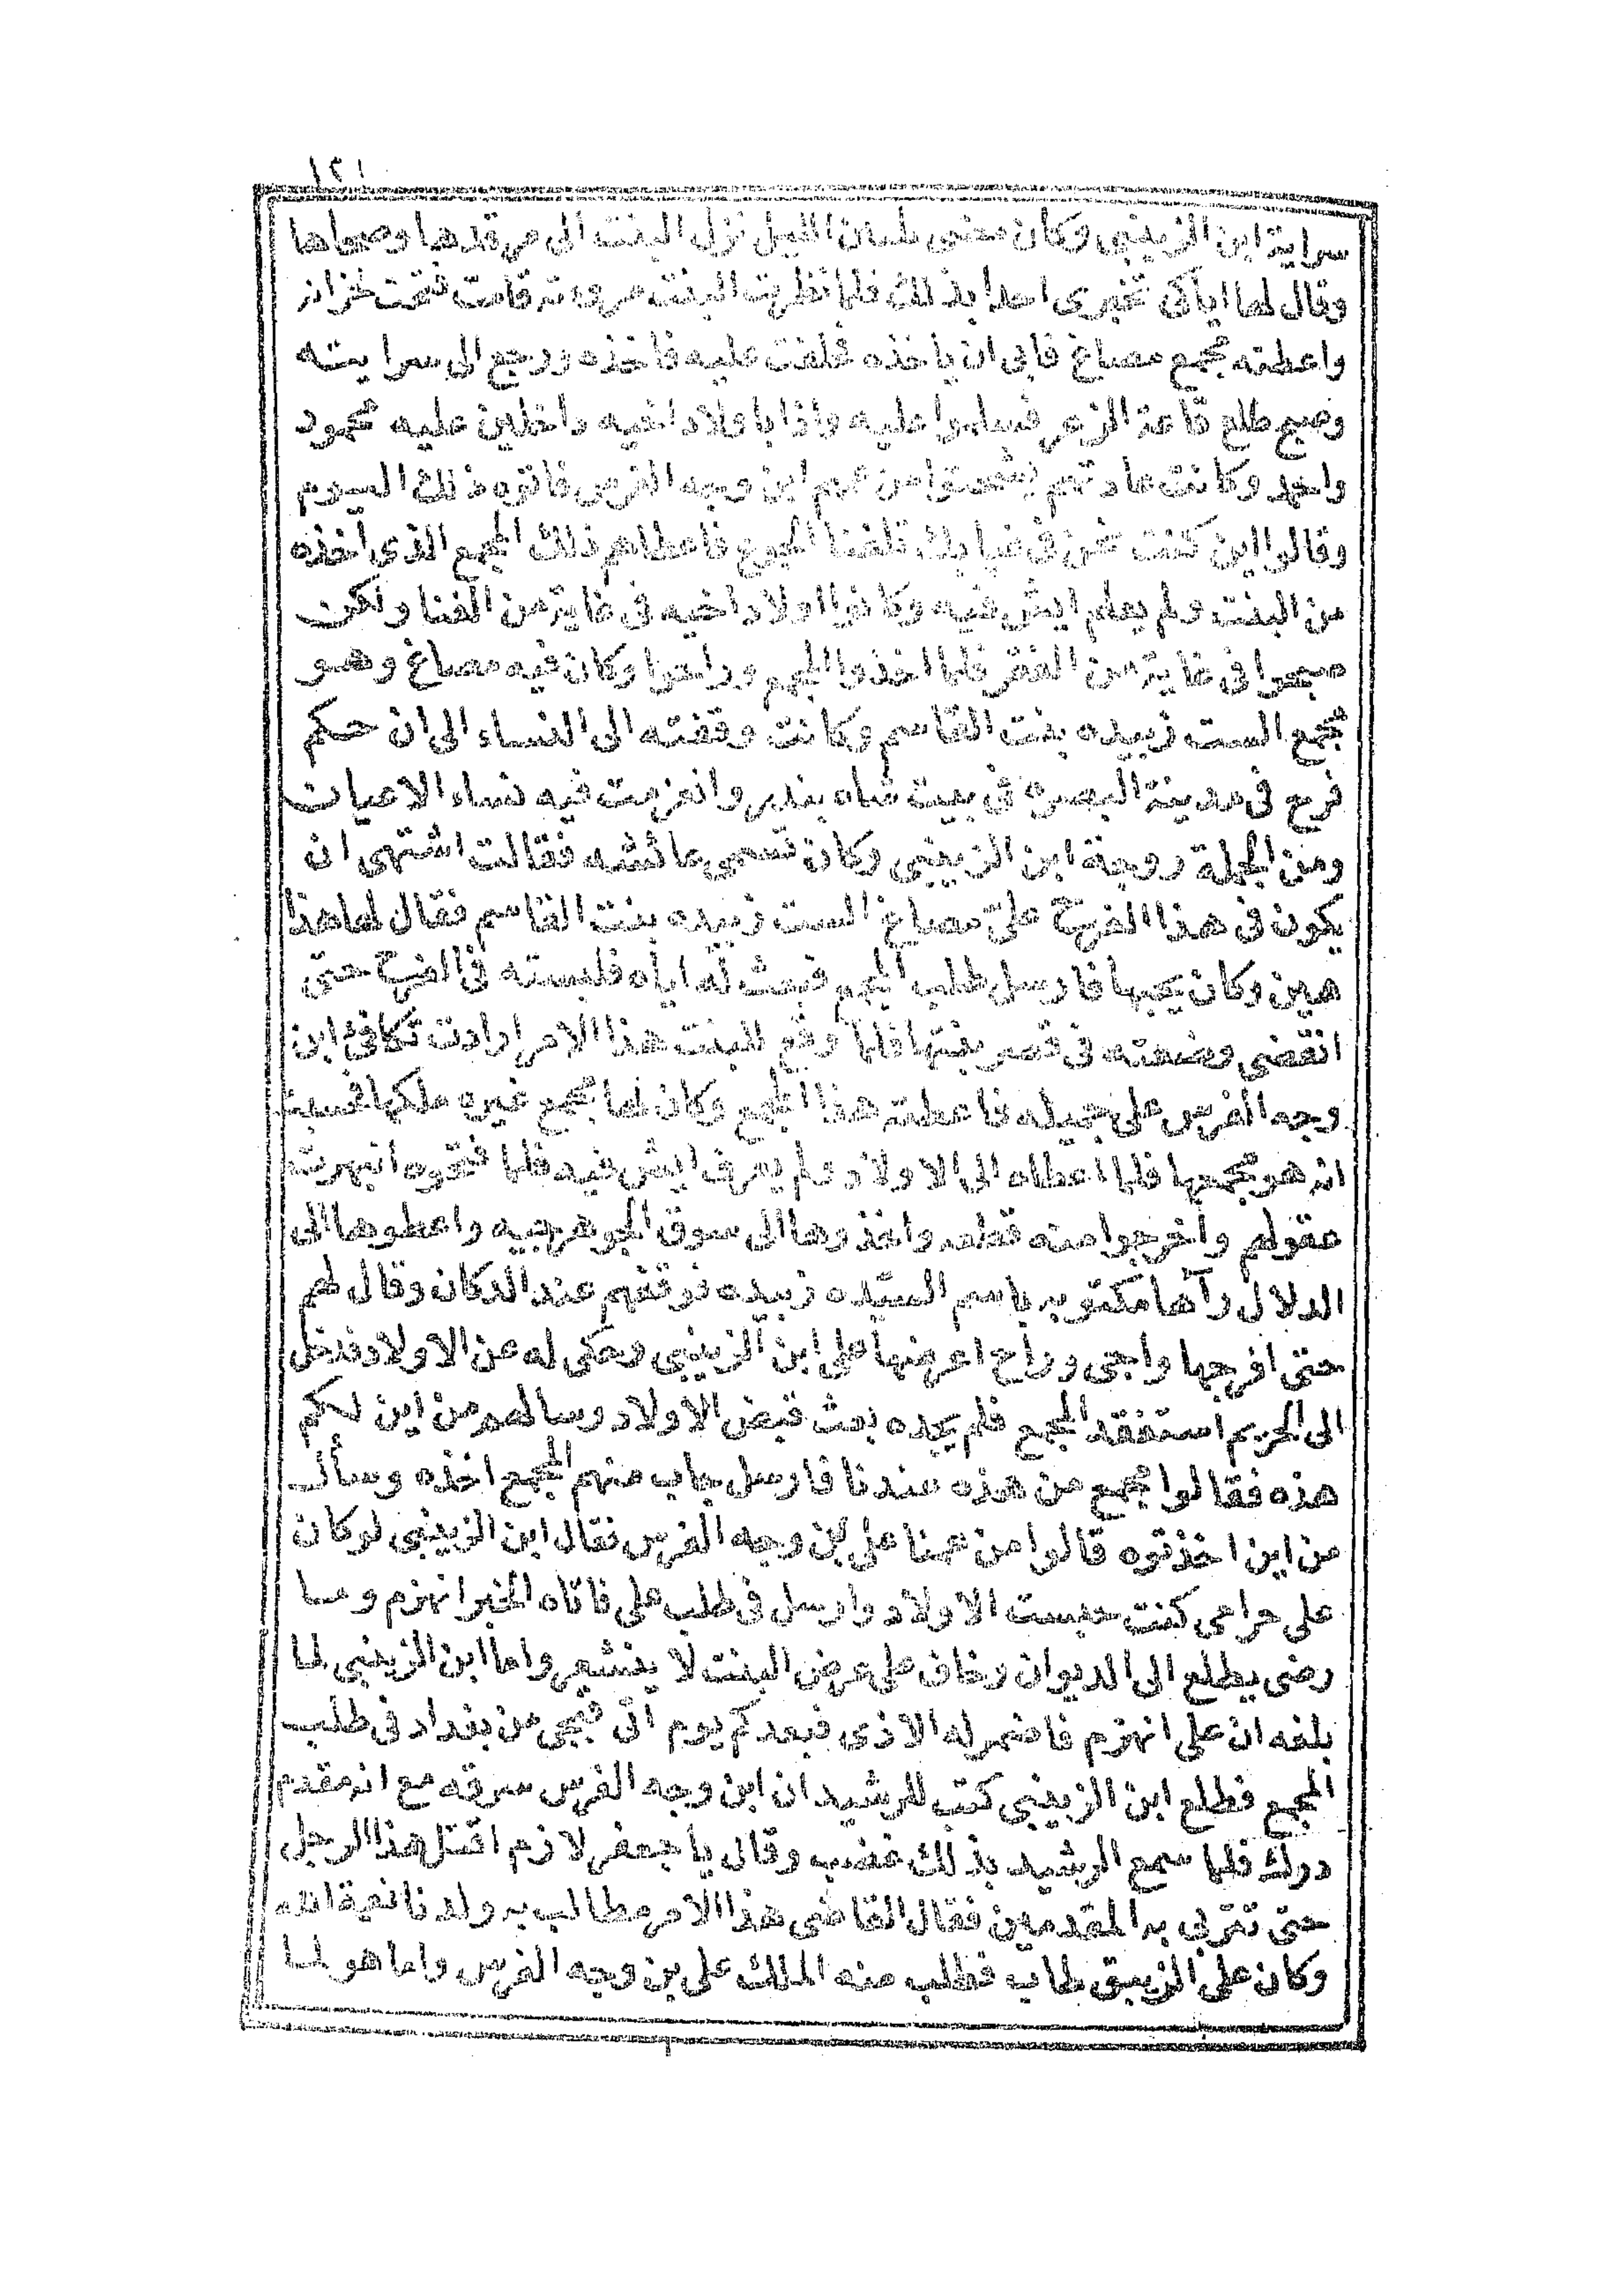 ١٢١
سراية ابن الزينبي وكان مضى ثلثان الليل نزل البنت الى مرقدها وصحاها
وقال لها اياكى تخبرى احدا بذلك فلما نظرت البنت مروته قامت فتحت الخزانه
واعطته مجمع مصاغ فابى ان ياخذه فحلفت عليه فاخذه ورجع الى سرايته
وصبح طلع قاعة الزعر فسلموا عليه واذا باولاد اخيه داخلين عليه محمود
واحمد وكانت عادتهم من عمهم ابن وجه الفرس فاتوه ذلك اليوم
وقالوا اين كنت نحن فى غيابك تلفنا الجوع فاعطاهم ذلك المجمع الذى اخذه
من البنت ولم يعلم ايش فيه وكانوا اولاد اخيه فى غاية من الغنا ولكن
صبحوا فى غاية من الفقر فلما اخذوا المجمع وراحوا وكان فيه مصاغ وهو
مجمع الست زبيده بنت القاسم وكانت وقفته الى النساء الى ان حكم
فرح فى مدينة البصره فى بيت شاه بندر وانعزمت فيه نساء الاعيان
ومن الجملة زوجة ابن الزينبي وكان تسمى عائشه فقالت اشتهى ان
يكون فى هذا الفرح علىّ مصاغ الست زبيده بنت القاسم فقال لها هذا
هين وكان يحبها فارسل طلب المجمع فبعث له اياه فلبسته فى الفرح حتى
انقضى وضعته فى قصر بنتها فلما وقع للبنت هذا الامر ارادت تكافئ ابن
وجه الفرس على جميله فاعطته هذا المجمع وكان لها مجمع غيره ملكها فحسبة
انه هو مجمعها فلما اعطاه الى الاولاد ولم يعرف ايش فيه فلما فتحوه انبهرت
عقولهم واخرجوا منه قطعه واخذوها الى سوق الجوهرجيه واعطوها الى
الدلال رآها مكتوبه باسم السيده زبيده فوقفهم عند الدكان وقال لهم
حتى افرجها واجى وراح اعرضها على ابن الزينبي وحكى له عن الاولاد فدخل
الى الحريم استفقد المجمع فلم يجده بعث قبض الاولاد وسالهم من اين لكم
هذه فقالوا مجمع من هذه عندنا فارسل جاب منهم المجمع اخذه وسأل
من اين اخذتوه قالوا من عمنا على بن وجه الفرس فقال ابن الزينبي لو كان
على حرامى كنت حبست الاولاد وارسل فى طلب على فاتاه الخبر انهزم وما
رضى يطلع الى الديوان وخاف على عرض البنت لا ينشهر واما ابن الزينبي لما
بلغه ان على انهزم فاضمر له الاذى فبعد كم يوم اتى قبجى من بغداد فى طلب
المجمع فطلع ابن الزينبي كتب للرشيد ان ابن وجه الفرس سرقه مع انه مقدم
درك فلما سمع الرشيد بذلك غضب وقال يا جعفر لازم اقتل هذا الرجل
حتى تتربى به المقدمين فقال القاضى هذا الامر مطالب به ولدنا نعمة الله
وكان على الزيبق طاب فطلب منه الملك على بن وجه الفرس واما هو لما